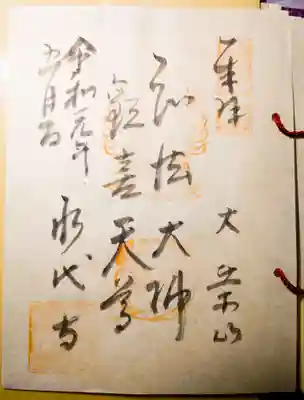 奉拝
大栄山
弘法大師
歓喜天尊
永代寺
令和元年
五月